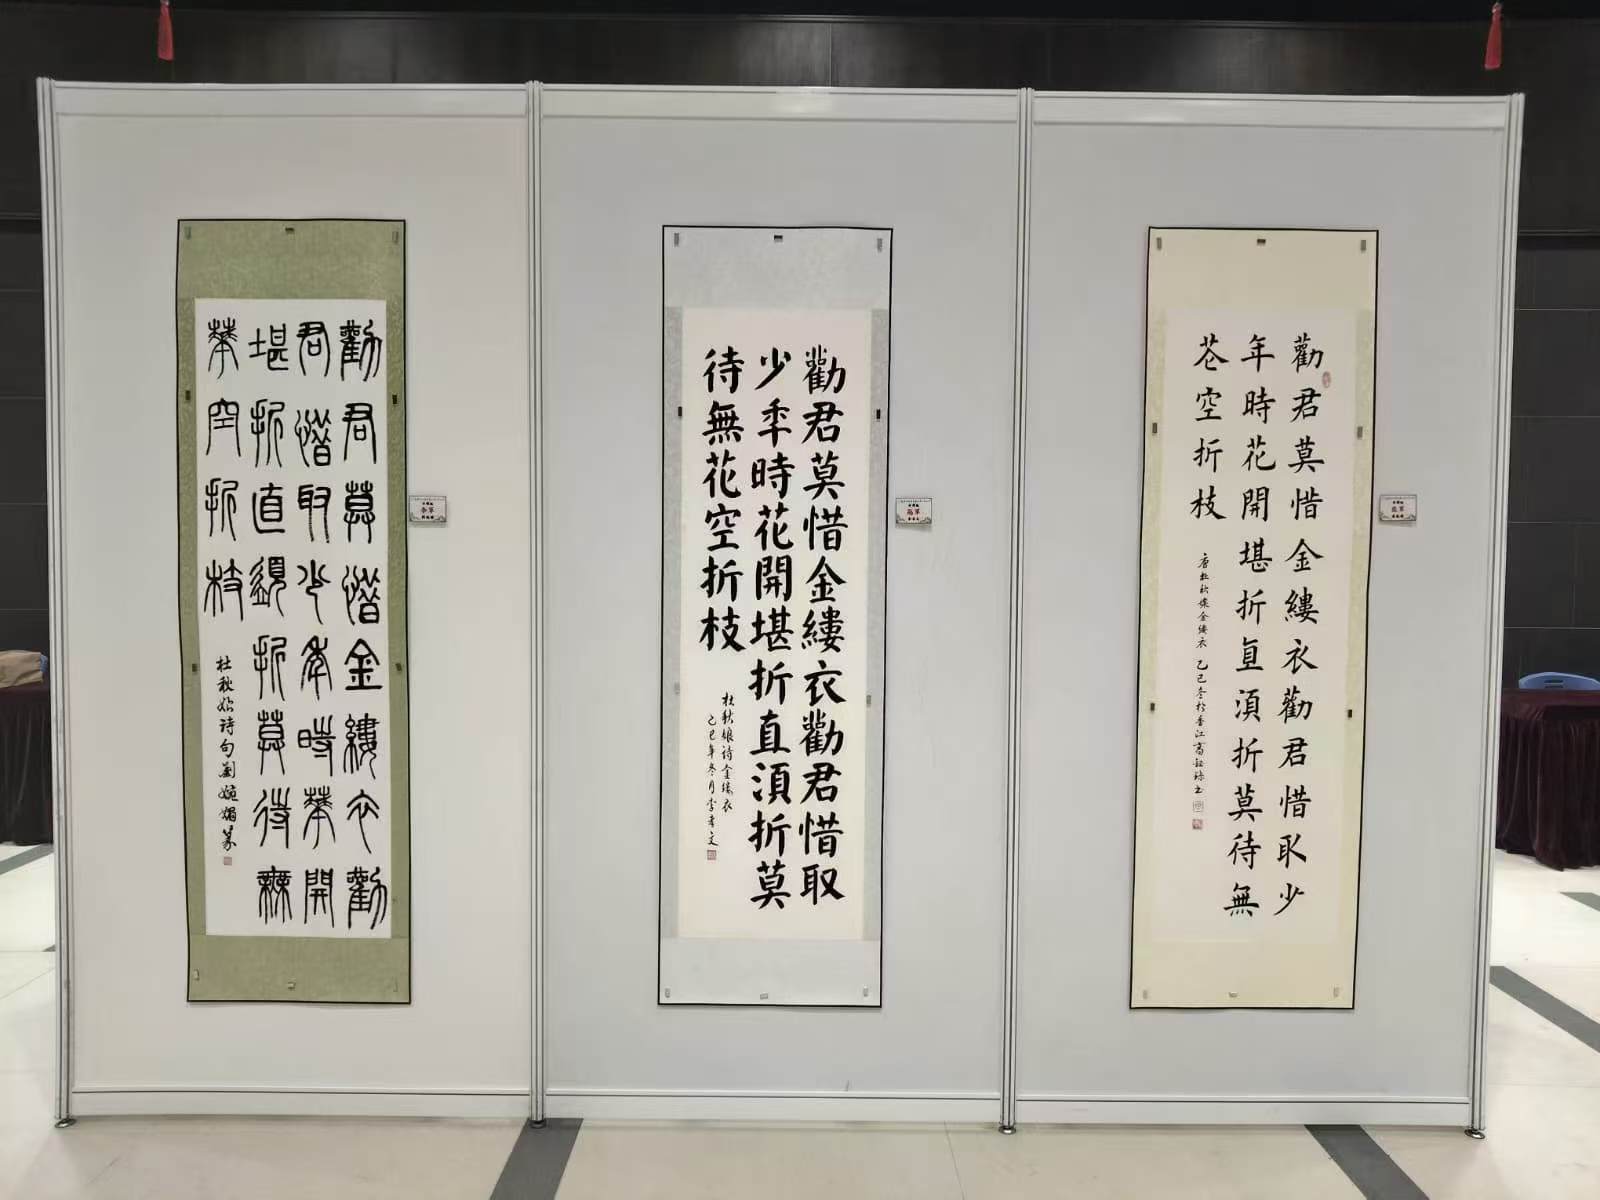 勸君莫惜金縷衣勸
君惜取少年時華開
堪折直須折莫待無
華空折枝
杜秋娘詩句劉婉媚篆
季軍
勸君莫惜金縷衣勸君惜取
少年時花開堪折直須折莫
待無花空折枝
杜秋娘诗金缕衣
乙巳年冬月李孝文
冠軍
勸君莫惜金縷衣勸君惜取少
年時花開堪折直須折莫待無
花空折枝
唐杜秋娘金缕衣 乙巳冬於香江
亞軍